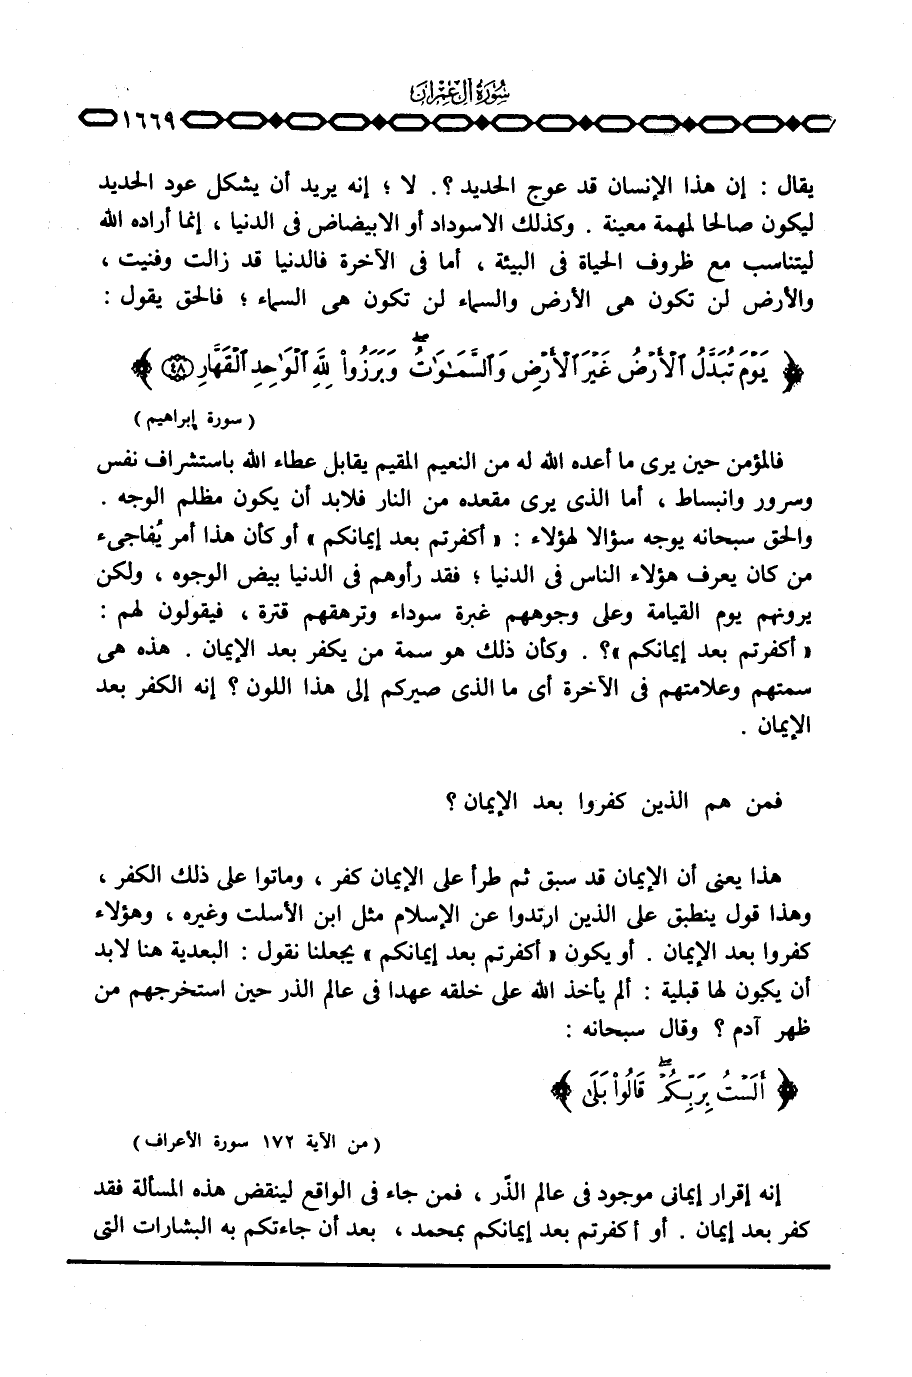 سورة آل عمران
١٦٦٩
يقال : إن هذا الإنسان قد عوج الحديد ؟. لا ؛ إنه يريد أن يشكل عود الحديد
ليكون صالحا لمهمة معينة . وكذلك الاسوداد أو الابيضاض فى الدنيا ، إنما أراده الله
ليتناسب مع ظروف الحياة فى البيئة ، أما فى الآخرة فالدنيا قد زالت وفنيت ،
والأرض لن تكون هى الأرض والسماء لن تكون هى السماء ؛ فالحق يقول :
﴿ يَوْمَ تُبَدَّلُ ٱلْأَرْضُ غَيْرَ ٱلْأَرْضِ وَٱلسَّمَـٰوَٰتُ ۖ وَبَرَزُوا۟ لِلَّهِ ٱلْوَٰحِدِ ٱلْقَهَّارِ ﴿٤٨﴾ ﴾
( سورة إبراهيم )
فالمؤمن حين يرى ما أعده الله له من النعيم المقيم يقابل عطاء الله باستشراف نفس
وسرور وانبساط ، أما الذى يرى مقعده من النار فلابد أن يكون مظلم الوجه .
والحق سبحانه يوجه سؤالا لهؤلاء : « أكفرتم بعد إيمانكم » أو كأن هذا أمر يُفاجىء
من كان يعرف هؤلاء الناس فى الدنيا ؛ فقد رأوهم فى الدنيا بيض الوجوه ، ولكن
يرونهم يوم القيامة وعلى وجوههم غبرة سوداء وترهقهم قترة ، فيقولون لهم :
« أكفرتم بعد إيمانكم »؟ . وكأن ذلك هو سمة من يكفر بعد الإيمان . هذه هى
سمتهم وعلامتهم فى الآخرة أى ما الذى صيركم إلى هذا اللون ؟ إنه الكفر بعد
الإيمان .
فمن هم الذين كفروا بعد الإيمان ؟
هذا يعنى أن الإيمان قد سبق ثم طرأ على الإيمان كفر ، وماتوا على ذلك الكفر ،
وهذا قول ينطبق على الذين ارتدوا عن الإسلام مثل ابن الأسلت وغيره ، وهؤلاء
كفروا بعد الإيمان . أو يكون « أكفرتم بعد إيمانكم » يجعلنا نقول : البعدية هنا لابد
أن يكون لها قبلية : ألم يأخذ الله على خلقه عهدا فى عالم الذر حين استخرجهم من
ظهر آدم ؟ وقال سبحانه :
﴿ أَلَسْتُ بِرَبِّكُمْ ۖ قَالُوا۟ بَلَىٰ ﴾
( من الآية ١٧٢ سورة الأعراف )
إنه إقرار إيمانى موجود فى عالم الذَّر ، فمن جاء فى الواقع لينقض هذه المسألة فقد
كفر بعد إيمان . أو أكفرتم بعد إيمانكم بمحمد ، بعد أن جاءتكم به البشارات التى